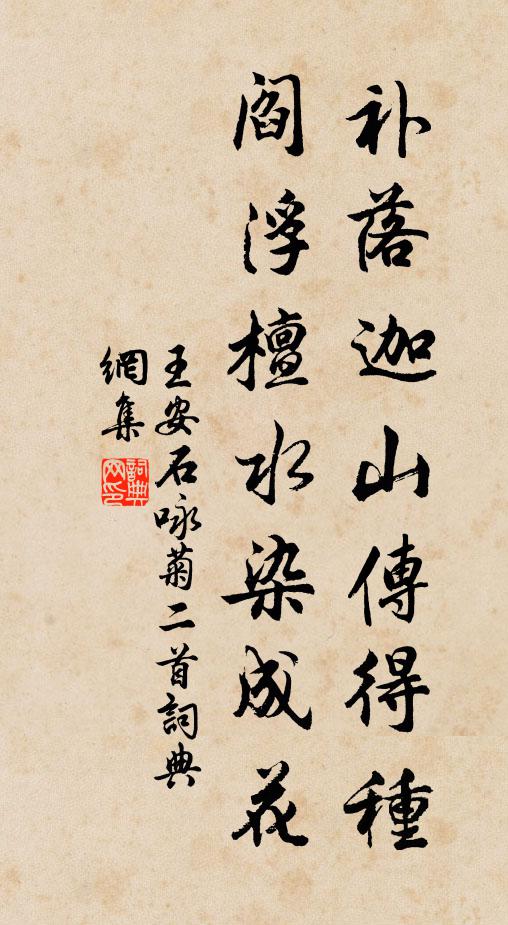 补落迦山傳得種
阎浮檀水染成花
王安石咏菊二首詞典
網集
詞典
网印